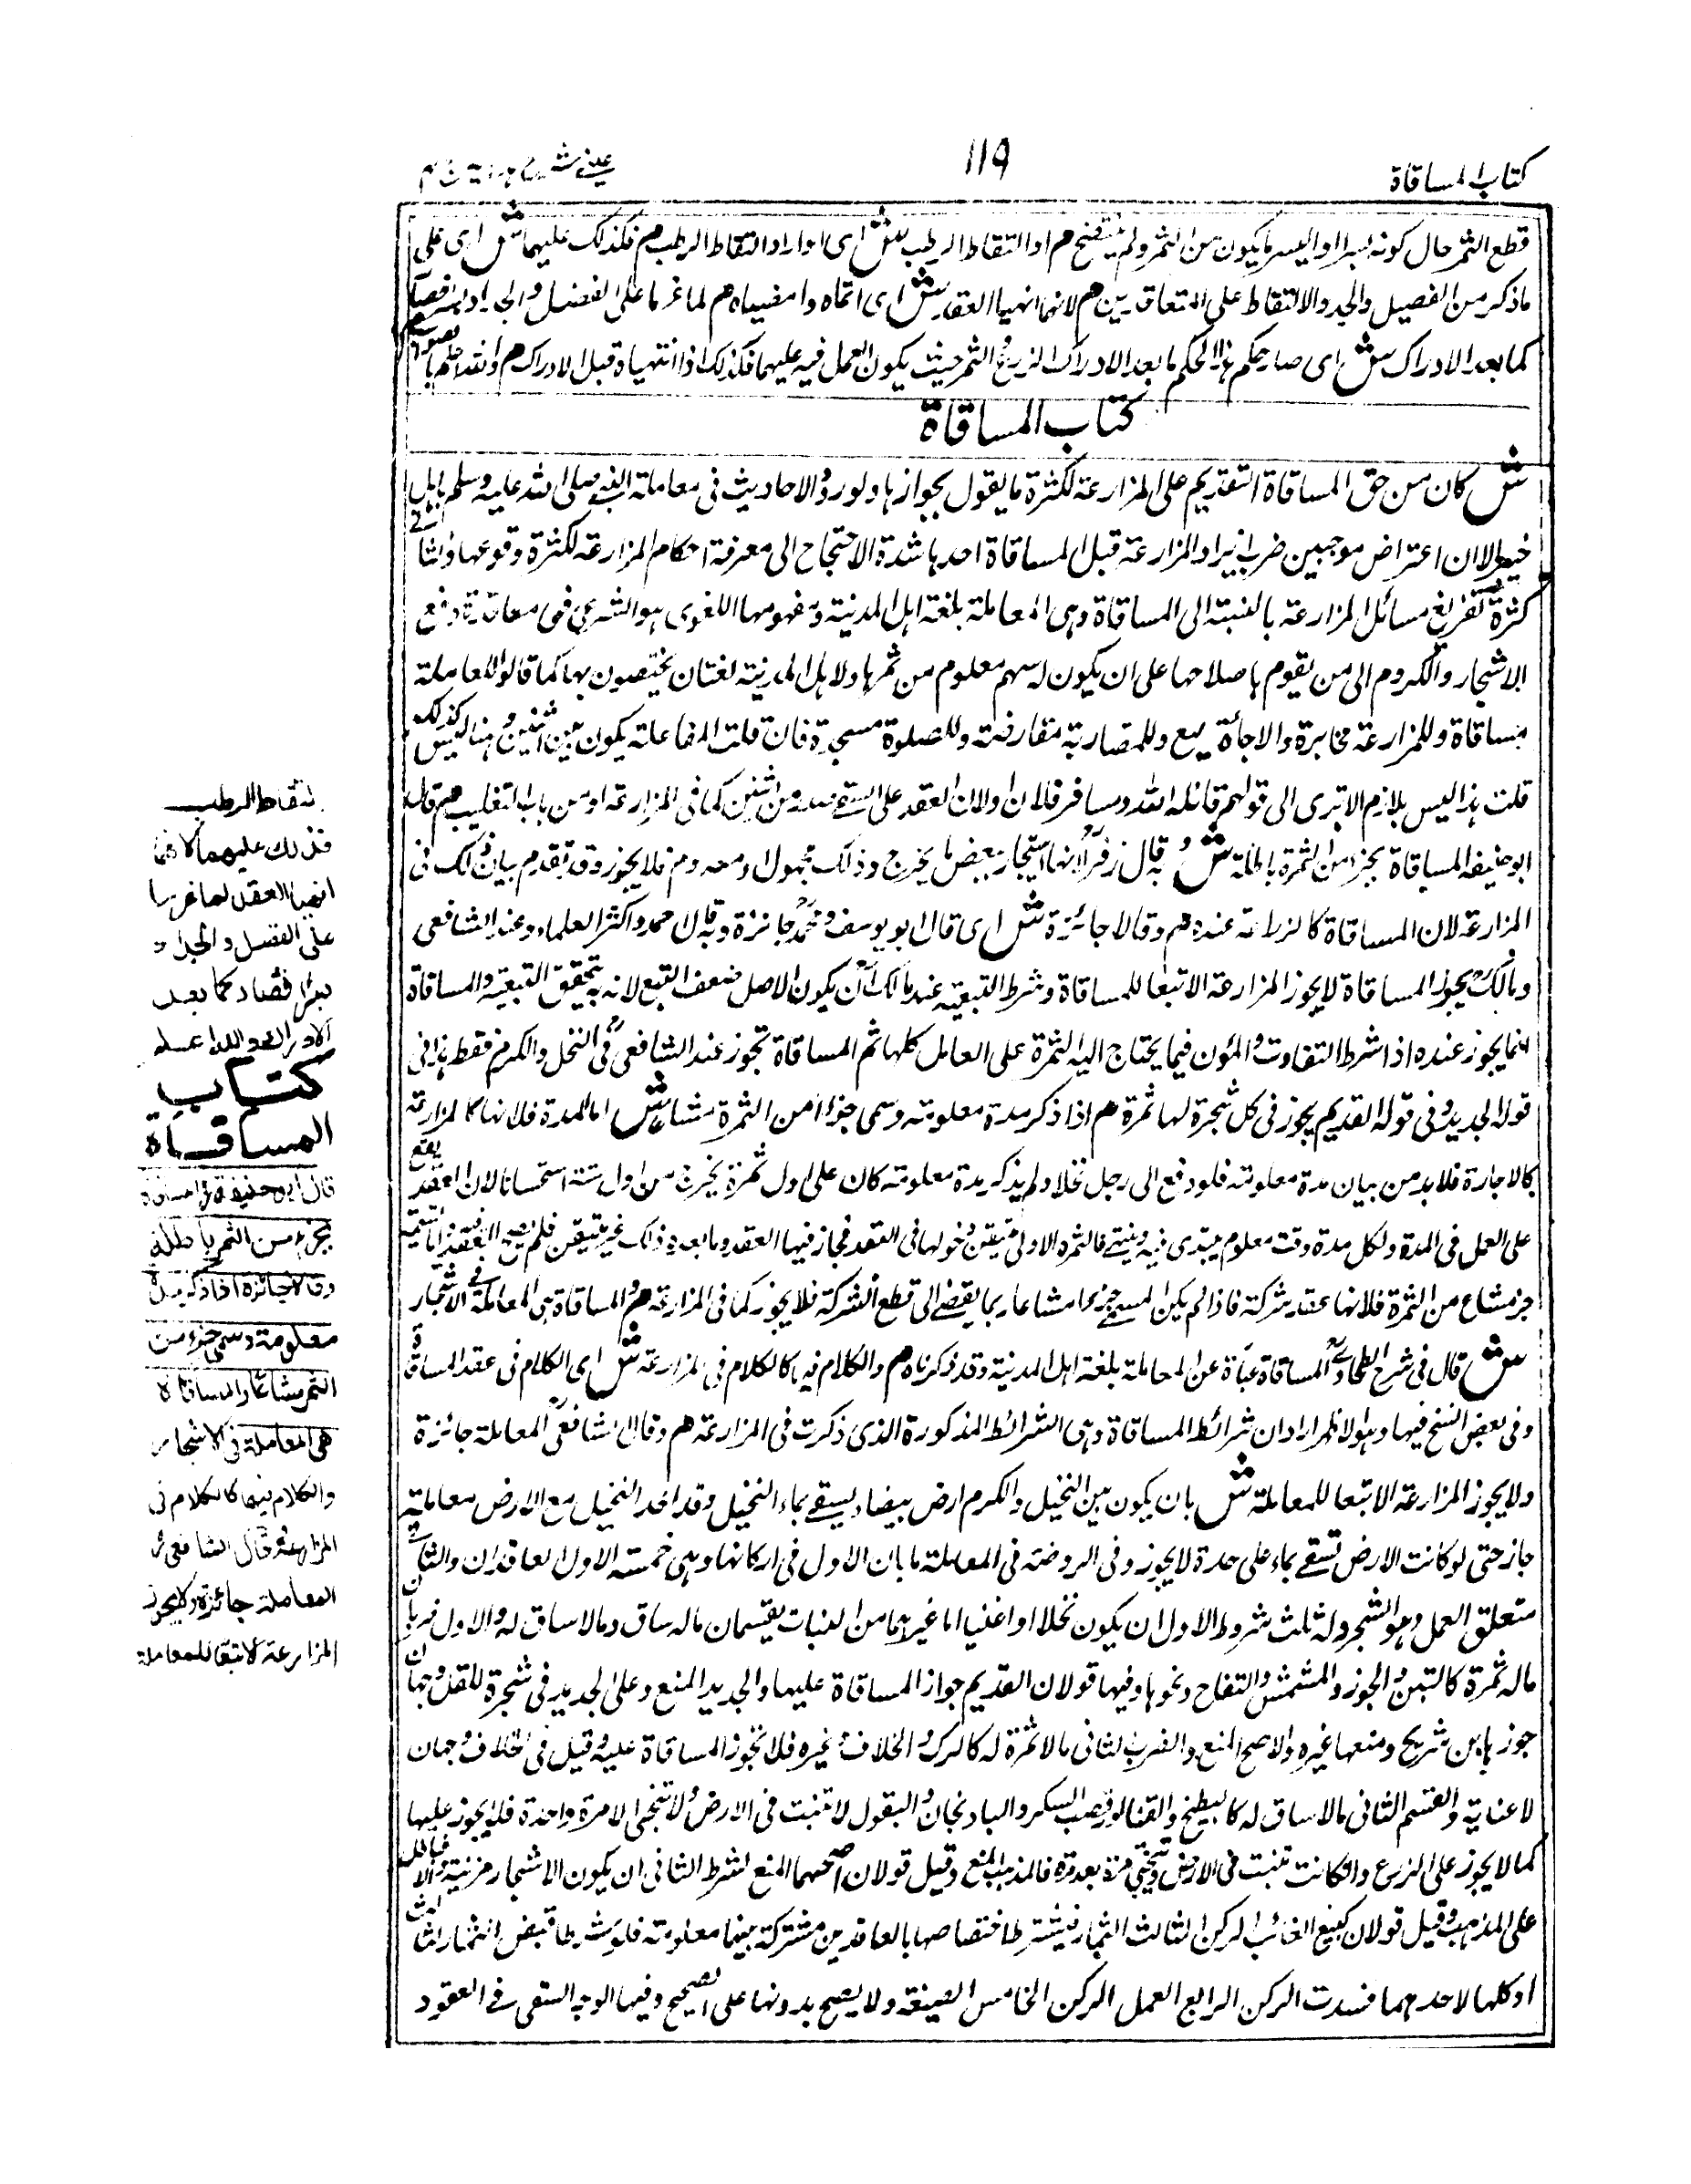 كتاب المساقاة
١١٩
عينى شرح هداية ج ٤
قطع الثمر حال كونه بسرا والبسر ما يكون من الثمر ولم ينضج م او التقاط الرطب ش اى او ارادا التقاط الرطب م فكذلك عليهما ش اى على
ما ذكر من الفصيل والجد والالتقاط على المتعاقدين م لانهما انهيا العقد ش اى اتماه وامضياه م لما عزما على الفصل والجداد بسرا فصار
كما بعد الادراك ش اى صار حكم هذا الحكم ما بعد الادراك الزرع والثمر حيث يكون العمل فيه عليهما فكذلك اذا انتهياه قبل الادراك م والله اعلم بالصواب
كتاب المساقاة
ش كان من حق المساقاة التقديم على المزارعة لكثرة ما يقول بجوازها ولورود الاحاديث فى معاملة النبى صلى الله عليه وسلم باهل
خيبر الا ان اعتراض موجبين ضرب ايراد المزارعة قبل المساقاة احدها شدة الاحتجاج الى معرفة احكام المزارعة لكثرة وقوعها والثانى
كثرة تفريع مسائل المزارعة بالنسبة الى المساقاة وهى المعاملة بلغة اهل المدينة ومفهومها اللغوى هو الشرعى فهى معاقدة دفع
الاشجار والكروم الى من يقوم باصلاحها على ان يكون له سهم معلوم من ثمرها ولاهل المدينة لغتان يختصون بها كما قالوا للمعاملة
مساقاة وللمزارعة مخابرة والاجارة بيع وللمضاربة مقارضة وللصلوة مسجدة فان قلت المفاعلة يكون بين اثنين وهنا ليس كذلك
قلت هذا ليس بلازم الا ترى الى قولهم قاتله الله وسافر فلان او لان العقد على السقى صدر من اثنين كما فى المزارعة او من باب التغليب م قال
ابو حنيفه المساقاة بجزء من الثمرة باطلة ش وبه قال زفر لانها استيجار ببعض ما يخرج وذلك مجهول او معدوم فلا يجوز وقد تقدم بيان ذلك فى
المزارعة لان المساقاة كالمزارعة عنده م وقالا جائزة ش اى قال ابو يوسف ومحمد جائزة وبه قال احمد واكثر العلماء وعند الشافعى
ومالك يجوز المساقاة لا يجوز المزارعة الا تبعا للمساقاة وشرط التبعية عند مالك ان يكون الاصل ضعف التبع لانه به يتحقق التبعية والمساقاة
انما يجوز عنده اذا شرط التفاوت والمؤن فيما يحتاج اليه الثمرة على العامل كلها ثم المساقاة تجوز عند الشافعى فى النخل والكرم فقط هذا فى
قوله الجديد وفى قوله القديم يجوز فى كل شجرة لها ثمرة م اذا ذكر مدة معلومة وسمى جزءا من الثمرة مشاعا ش اما المدة فلانها كالمزارعة
كالاجارة فلا بد من بيان مدة معلومة فلو دفع الى رجل نخلا ولم يذكر مدة معلومة كان على اول ثمرة يخرج من اول سنة استحسانا لان العقد يقع
على العمل فى المدة ولكل مدة وقت معلوم يبتدى فيه وينتهى فالثمرة الاولى متيقن دخولها فى العقد فجاز فيها العقد وما بعد ذلك غير متيقن فلم يصح العقد
جزء مشاع من الثمرة فلانها عقد شركة فاذا لم يكن المسمى جزءا مشاعا ربما يفضى الى قطع الشركة فلا يجوز كما فى المزارعة م والمساقاة هى المعاملة فى الاشجار
ش قال فى شرح الطحاوى المساقاة عبارة عن المعاملة بلغة اهل المدينة وقد ذكرناه م والكلام فيها كالكلام فى المزارعة ش اى الكلام فى عقد المساقاة
وفى بعض النسخ فيها وهو الاظهر اراد ان شرائط المساقاة وهى الشرائط المذكورة الذى ذكرت فى المزارعة م وقال الشافعى المعاملة جائزة
ولا يجوز المزارعة الا تبعا للمعاملة ش بان يكون بين النخيل والكرم ارض بيضاء يسقى بماء النخيل وقد اخذ النخيل مع الارض معاملة
جاز حتى لو كانت الارض تسقى بماء على حدة لا يجوز وفى الروضة فى المعاملة بابان الاول فى اركانها وهى خمسة الاول العاقدان والثانى
متعلق العمل وهو الشجر وله ثلث شروط الاول ان يكون نخلا او اعنبا اما غيرهما من النبات يقسمان ماله ساق وما لا ساق له والاول ضربان
ماله ثمرة كالتين والجوز والمشمش والتفاح ونحوها وفيها قولان القديم جواز المساقاة عليها والجديد المنع وعلى الجديد فى شجرة المقل وجهان
جوزها ابن شريح ومنعها غيره والاصح المنع والضرب الثانى ما لا ثمرة له كالدلب والخلاف وغيره فلا تجوز المساقاة عليه وقيل فى الخلاف وجهان
لاغنائه والقسم الثانى ما لا ساق له كالبطيخ والقثاء وقصب السكر والباذنجان والبقول لا تنبت فى الارض ولا تنجى الا مرة واحدة فلا يجوز عليها
كما لا يجوز على الزرع وان كانت تنبت فى الارض وتجنى مرة بعد مرة فالمذهب المنع وقيل قولان اصحهما المنع الشرط الثانى ان يكون الاشجار مرئية والا فباطل
على المذهب وقيل قولان كبيع الغائب الركن الثالث الثمار فيشترط اختصاصها بالعاقدين مشتركة بينهما معلومة فلو شرطا بعض الثمار لثالث
او كلها لاحدهما فسدت الركن الرابع العمل الركن الخامس الصيغة ولا يصح بدونها على الصحيح وفيها الوجه السقى فى العقود
التقاط الرطب
فكذلك عليهما لانهما
انهيا العقد لما عزما
على الفصل والجداد
بسرا فصار كما بعد
الادراك والله اعلم
كتاب
المساقاة
قال ابو حنيفة المساقاة
بجزء من الثمر باطلة
وقالا جائزة اذا ذكر مدة
معلومة وسمى جزء من
الثمر مشاعا والمساقاة
هى المعاملة فى الاشجار
والكلام فيها كالكلام فى
المزارعة وقال الشافعى
المعاملة جائزة ولا يجوز
المزارعة الا تبعا للمعاملة